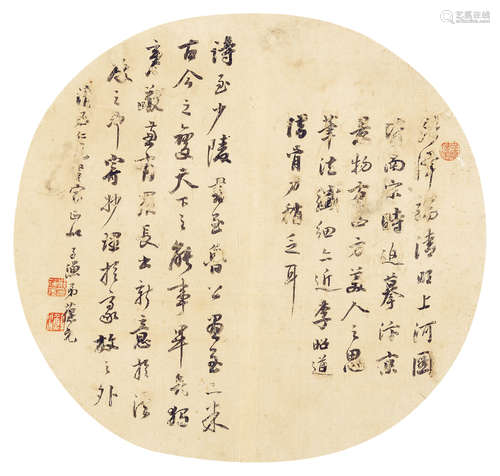 張擇端清明上河圖
皆南宋時追摹汴京
景物有西方美人之思
筆法纖細亦近李昭道
惜骨力稍乏耳
詩至少陵書至魯公畫至二米
古今之變天下之能事畢矣獨
彥敬兼有眾長出新意於法
度之中寄妙理於豪放之外
仁兄
艺典中国